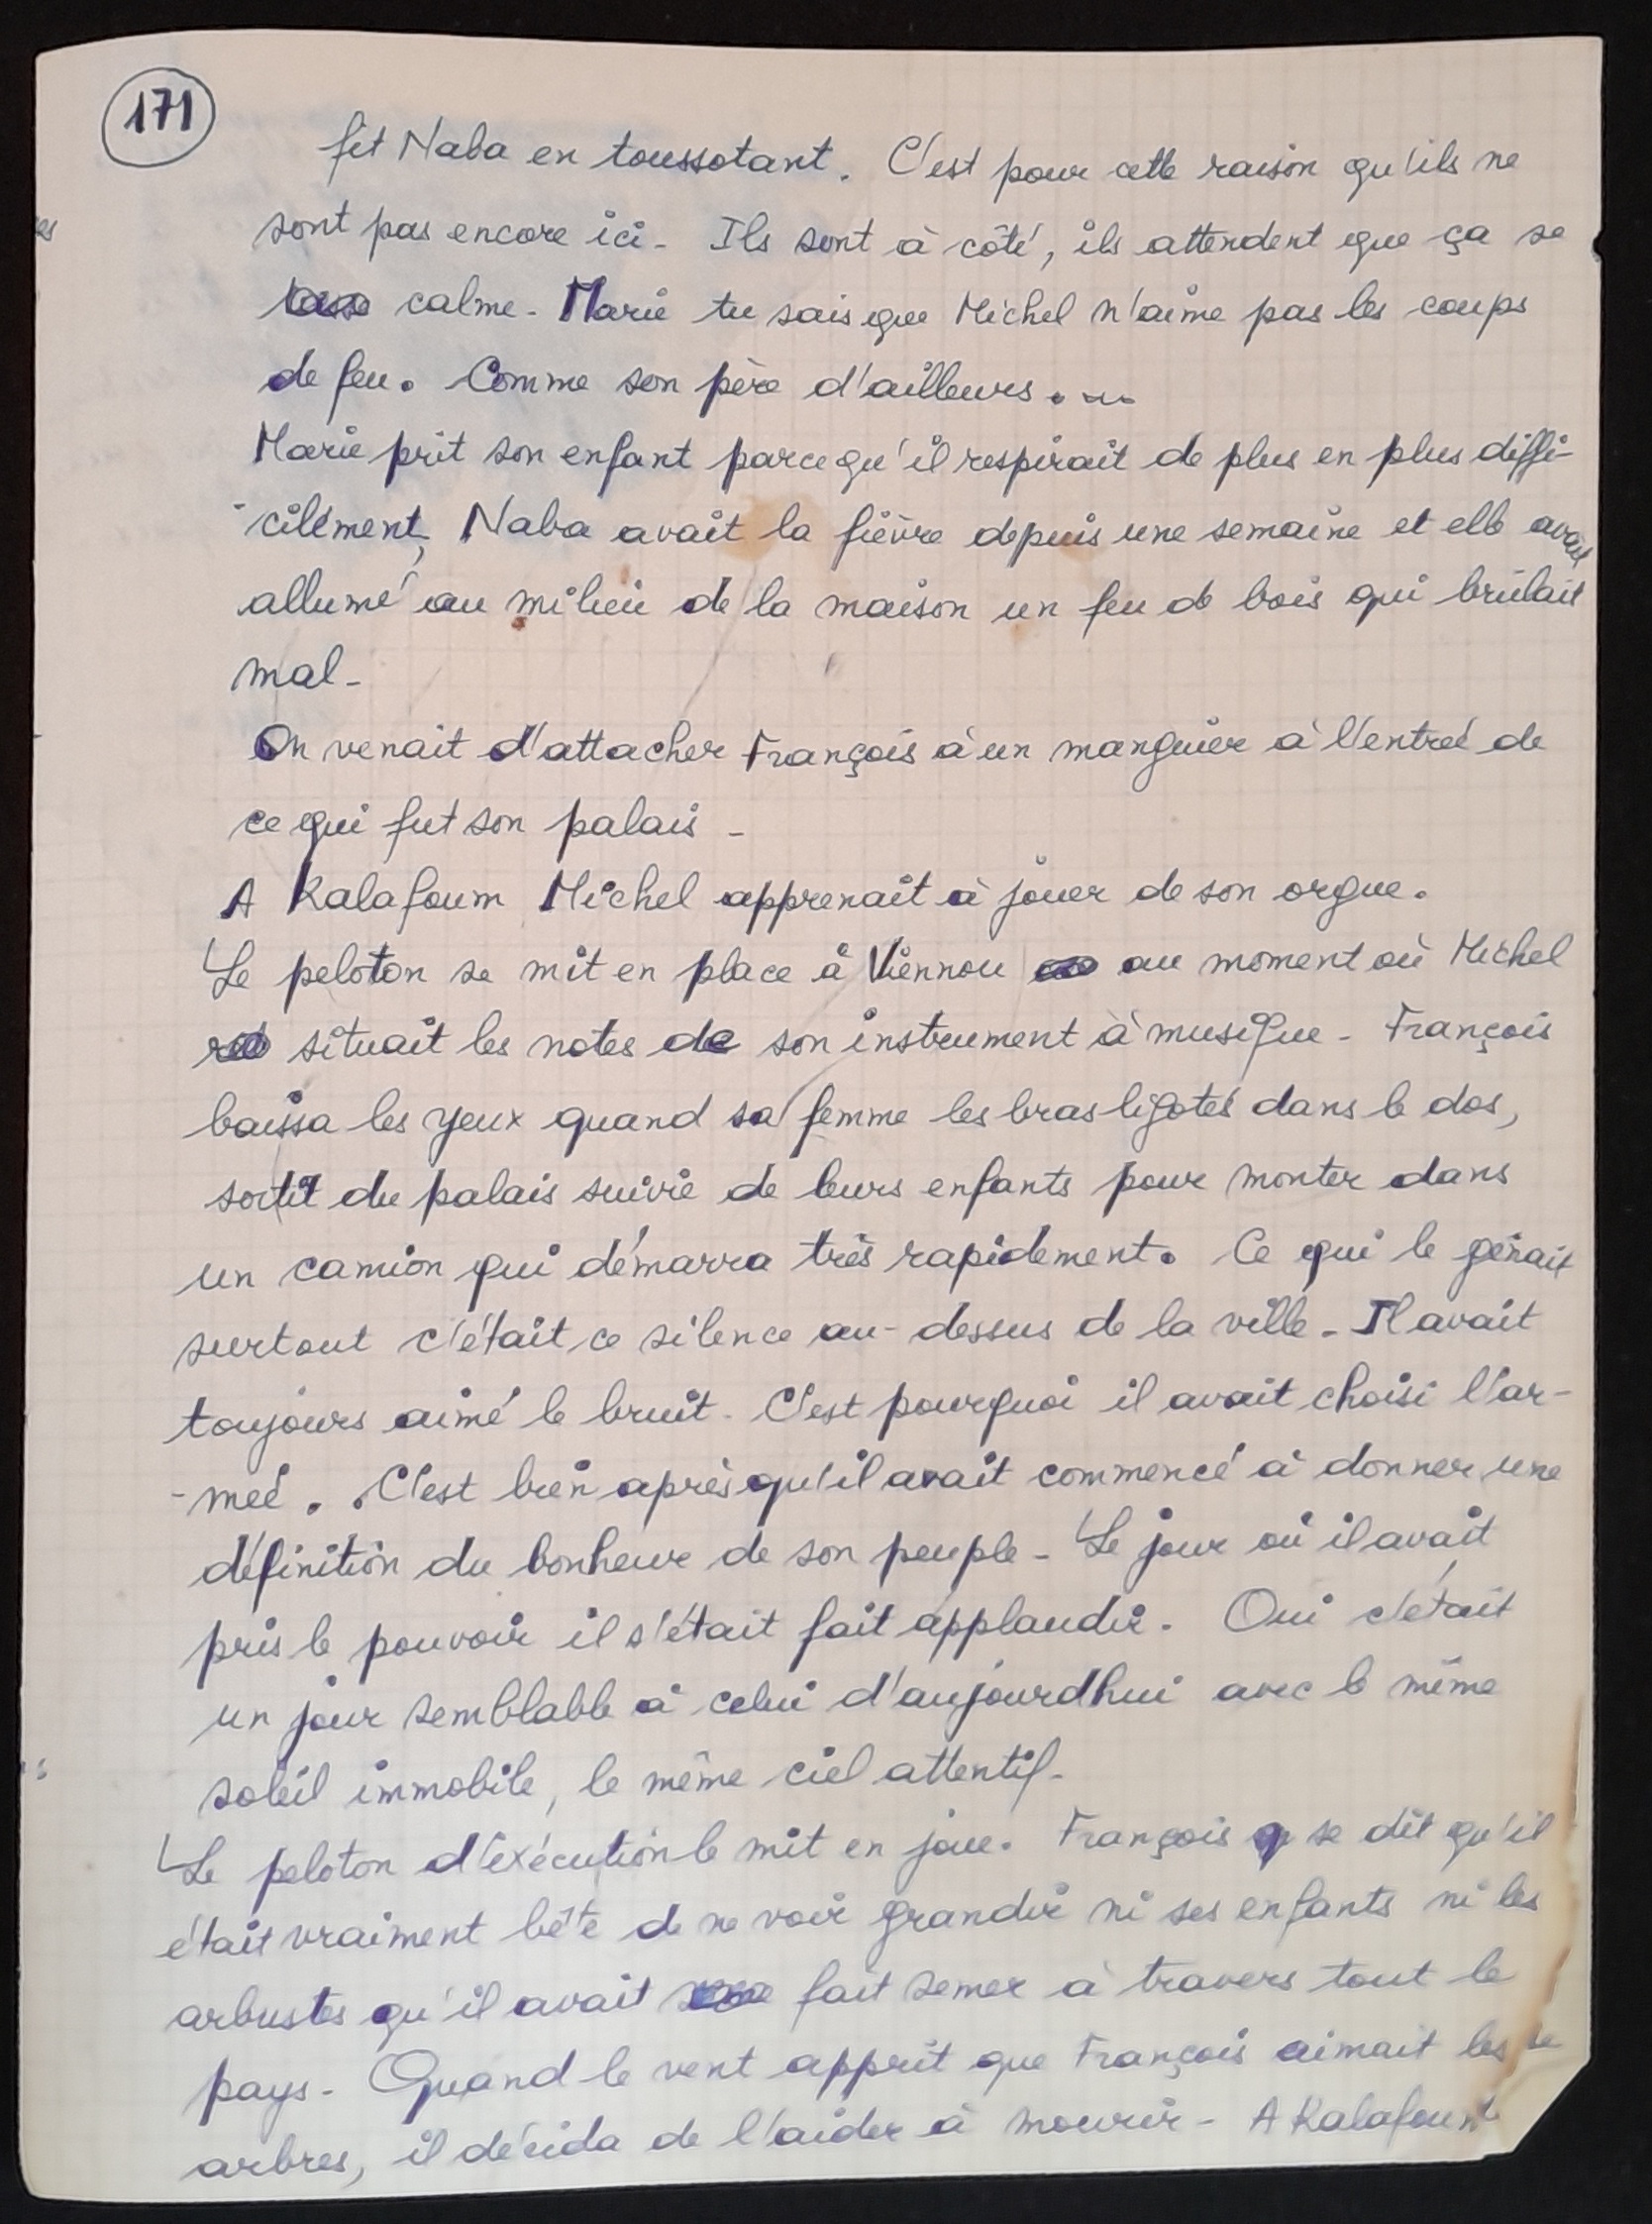 171
fit Naba en toussotant. C'est pour cette raison qu'ils ne
sont pas encore ici - Ils sont à côté, ils attendent que ça se
calme - Marie tu sais que Michel n'aime pas les coups
de feu. Comme son père d'ailleurs...
Marie prit son enfant parcequ'il respirait de plus en plus diffi-
-cilement, Naba avait la fièvre depuis une semaine et elle avait
allumé au milieu de la maison un feu de bois qui brûlait
mal -
On venait d'attacher François à un manguier à l'entrée de
ce qui fut son palais -
A Kalafoum Michel apprenait à jouer de son orgue.
Le peloton se mit en place à Viennou au moment où Michel
situait les notes de son instrument à musique - François
baissa les yeux quand sa femme les bras ligotés dans le dos,
sortit du palais suivie de leurs enfants pour monter dans
un camion qui démarra très rapidement. Ce qui le gênait
surtout c'était ce silence au-dessus de la ville - Il avait
toujours aimé le bruit - C'est pourquoi il avait choisi l'ar-
-mée. C'est bien après qu'il avait commencé à donner une
définition du bonheur de son peuple - Le jour où il avait
pris le pouvoir il s'était fait applaudir - Oui c'était
un jour semblable à celui d'aujourd'hui avec le même
soleil immobile, le même ciel attentif -
Le peloton d'exécution le mit en joue. François se dit qu'il
était vraiment bête de ne voir grandir ni ses enfants ni les
arbustes qu'il avait fait semer à travers tout le
pays - Quand le vent apprit que François aimait les
arbres, il décida de l'aider à mourir - A Kalafoum